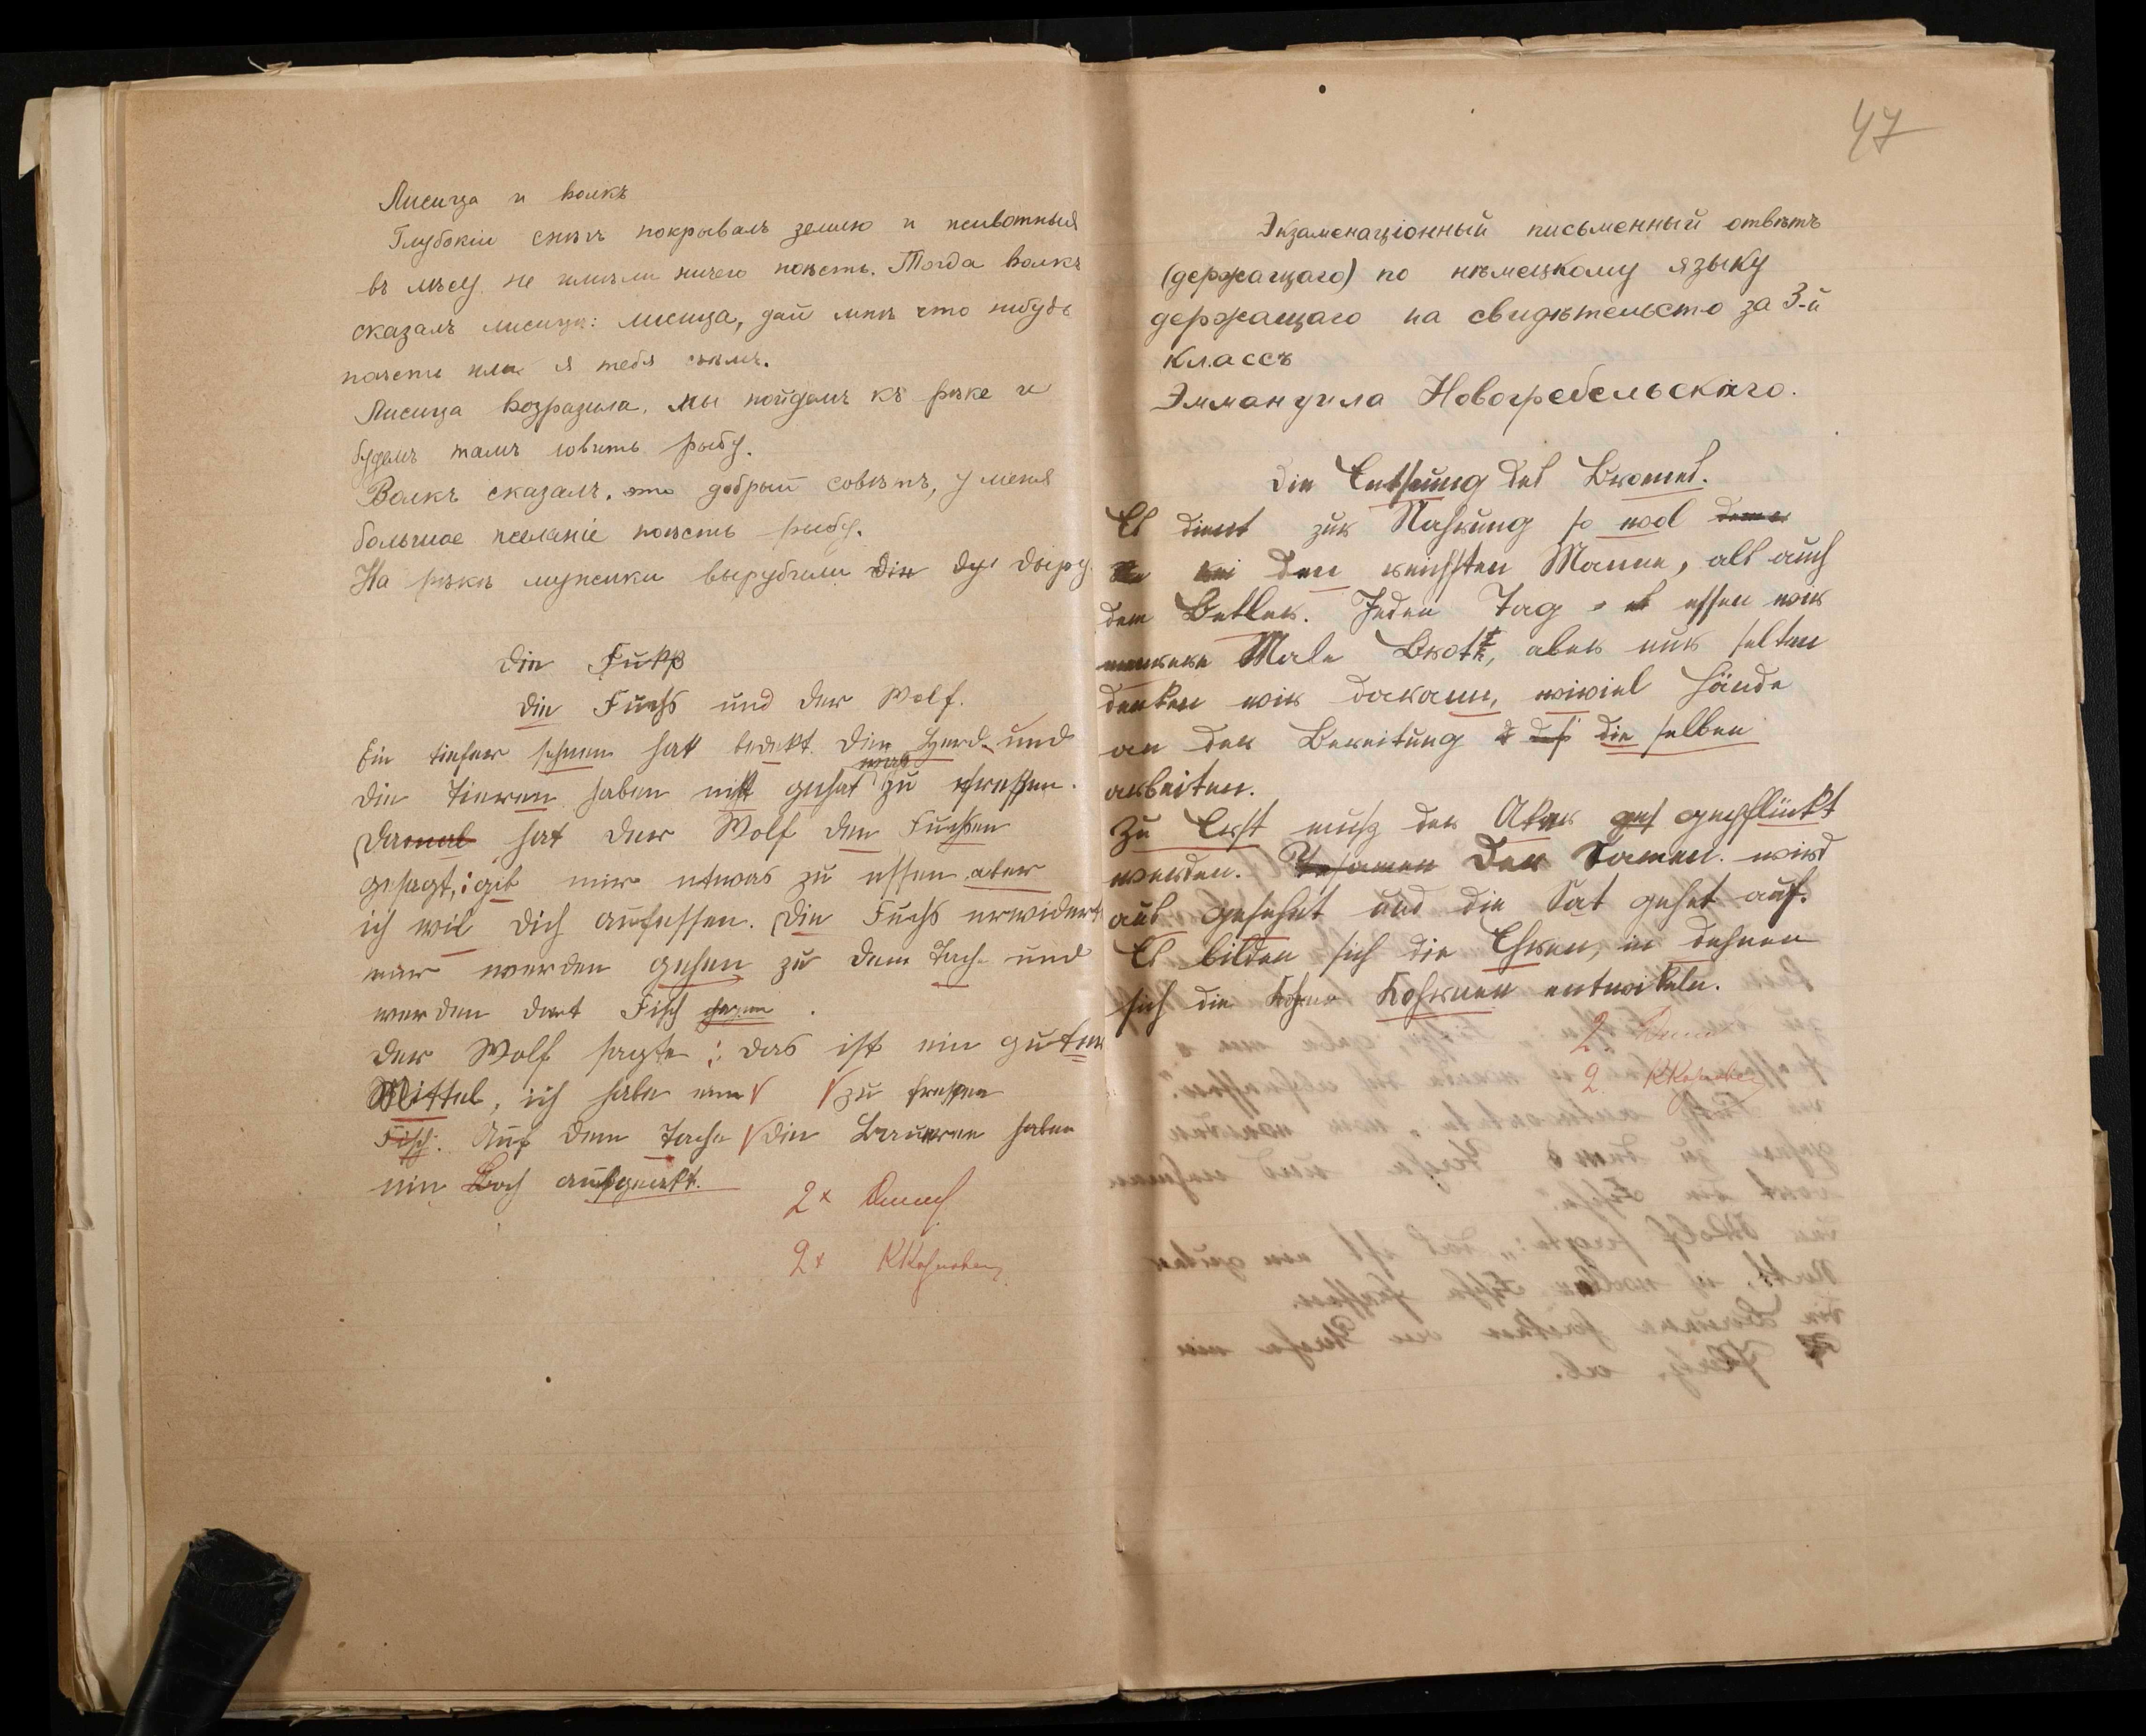 Лисица и волкъ
Глубокій снѣгъ покрывалъ землю и животныя
въ лѣсу не имѣли ничего поѣсть. Тогда волкъ
сказалъ лисицѣ: лисица, дай мнѣ что нибудь
поѣсть или я тебя съѣмъ.
Лисица возразила, мы пойдемъ къ рѣке и
будемъ тамъ ловить рыбу.
Волкъ сказалъ, это добрый совѣтъ, у меня
большое желаніе поѣсть рыбу.
На рѣкѣ мужики вырубили дыру
Die
Die Fuchs und der Wolf.
Ein tiefer schnee hatt bedekt die Herd und
die Tieren haben nicht gehat was zu fressen.
Damal hat der Wolf den Fuchsen
gesagt: gib mir etwas zu essen aber
ich wil dich aufessen. Die Fuchs erwidert
wir werden gehen zu dem Tach und
werden dort Fisch
Der Wolf sagte: das ist ein guter
Mittel, ich habe zu fressen
Fisch. Auf dem Tache die Baueren haben
ein Loch
2+
2+
47
Экзаменаціонный письменный отвѣтъ
(держащаго) по нѣмецкому языку
держащаго на свидѣтельсто за 3-й
классъ
Эммануила Новогребельскаго.
Die Entseung des Bromes.
Es dient zur Nahrung so wol
den reichsten Manne, als auch
dem Betler. Jeden Tag essen wir
merere Male Brott, aber nur selten
denken wir darann, wiviel Hände
an der Bereitung die selben
arbeiten.
Zu Erst muß der Aker gepflückt
werden. Der Samen wird
aus gesehet und die Sat gehet auf.
Es bilden sich die Ehren, in dehnen
sich die Kohrnen entwikeln.
2
2